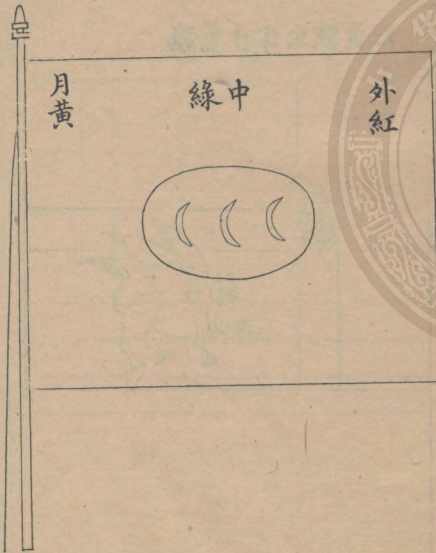 外紅
中綠
月黃